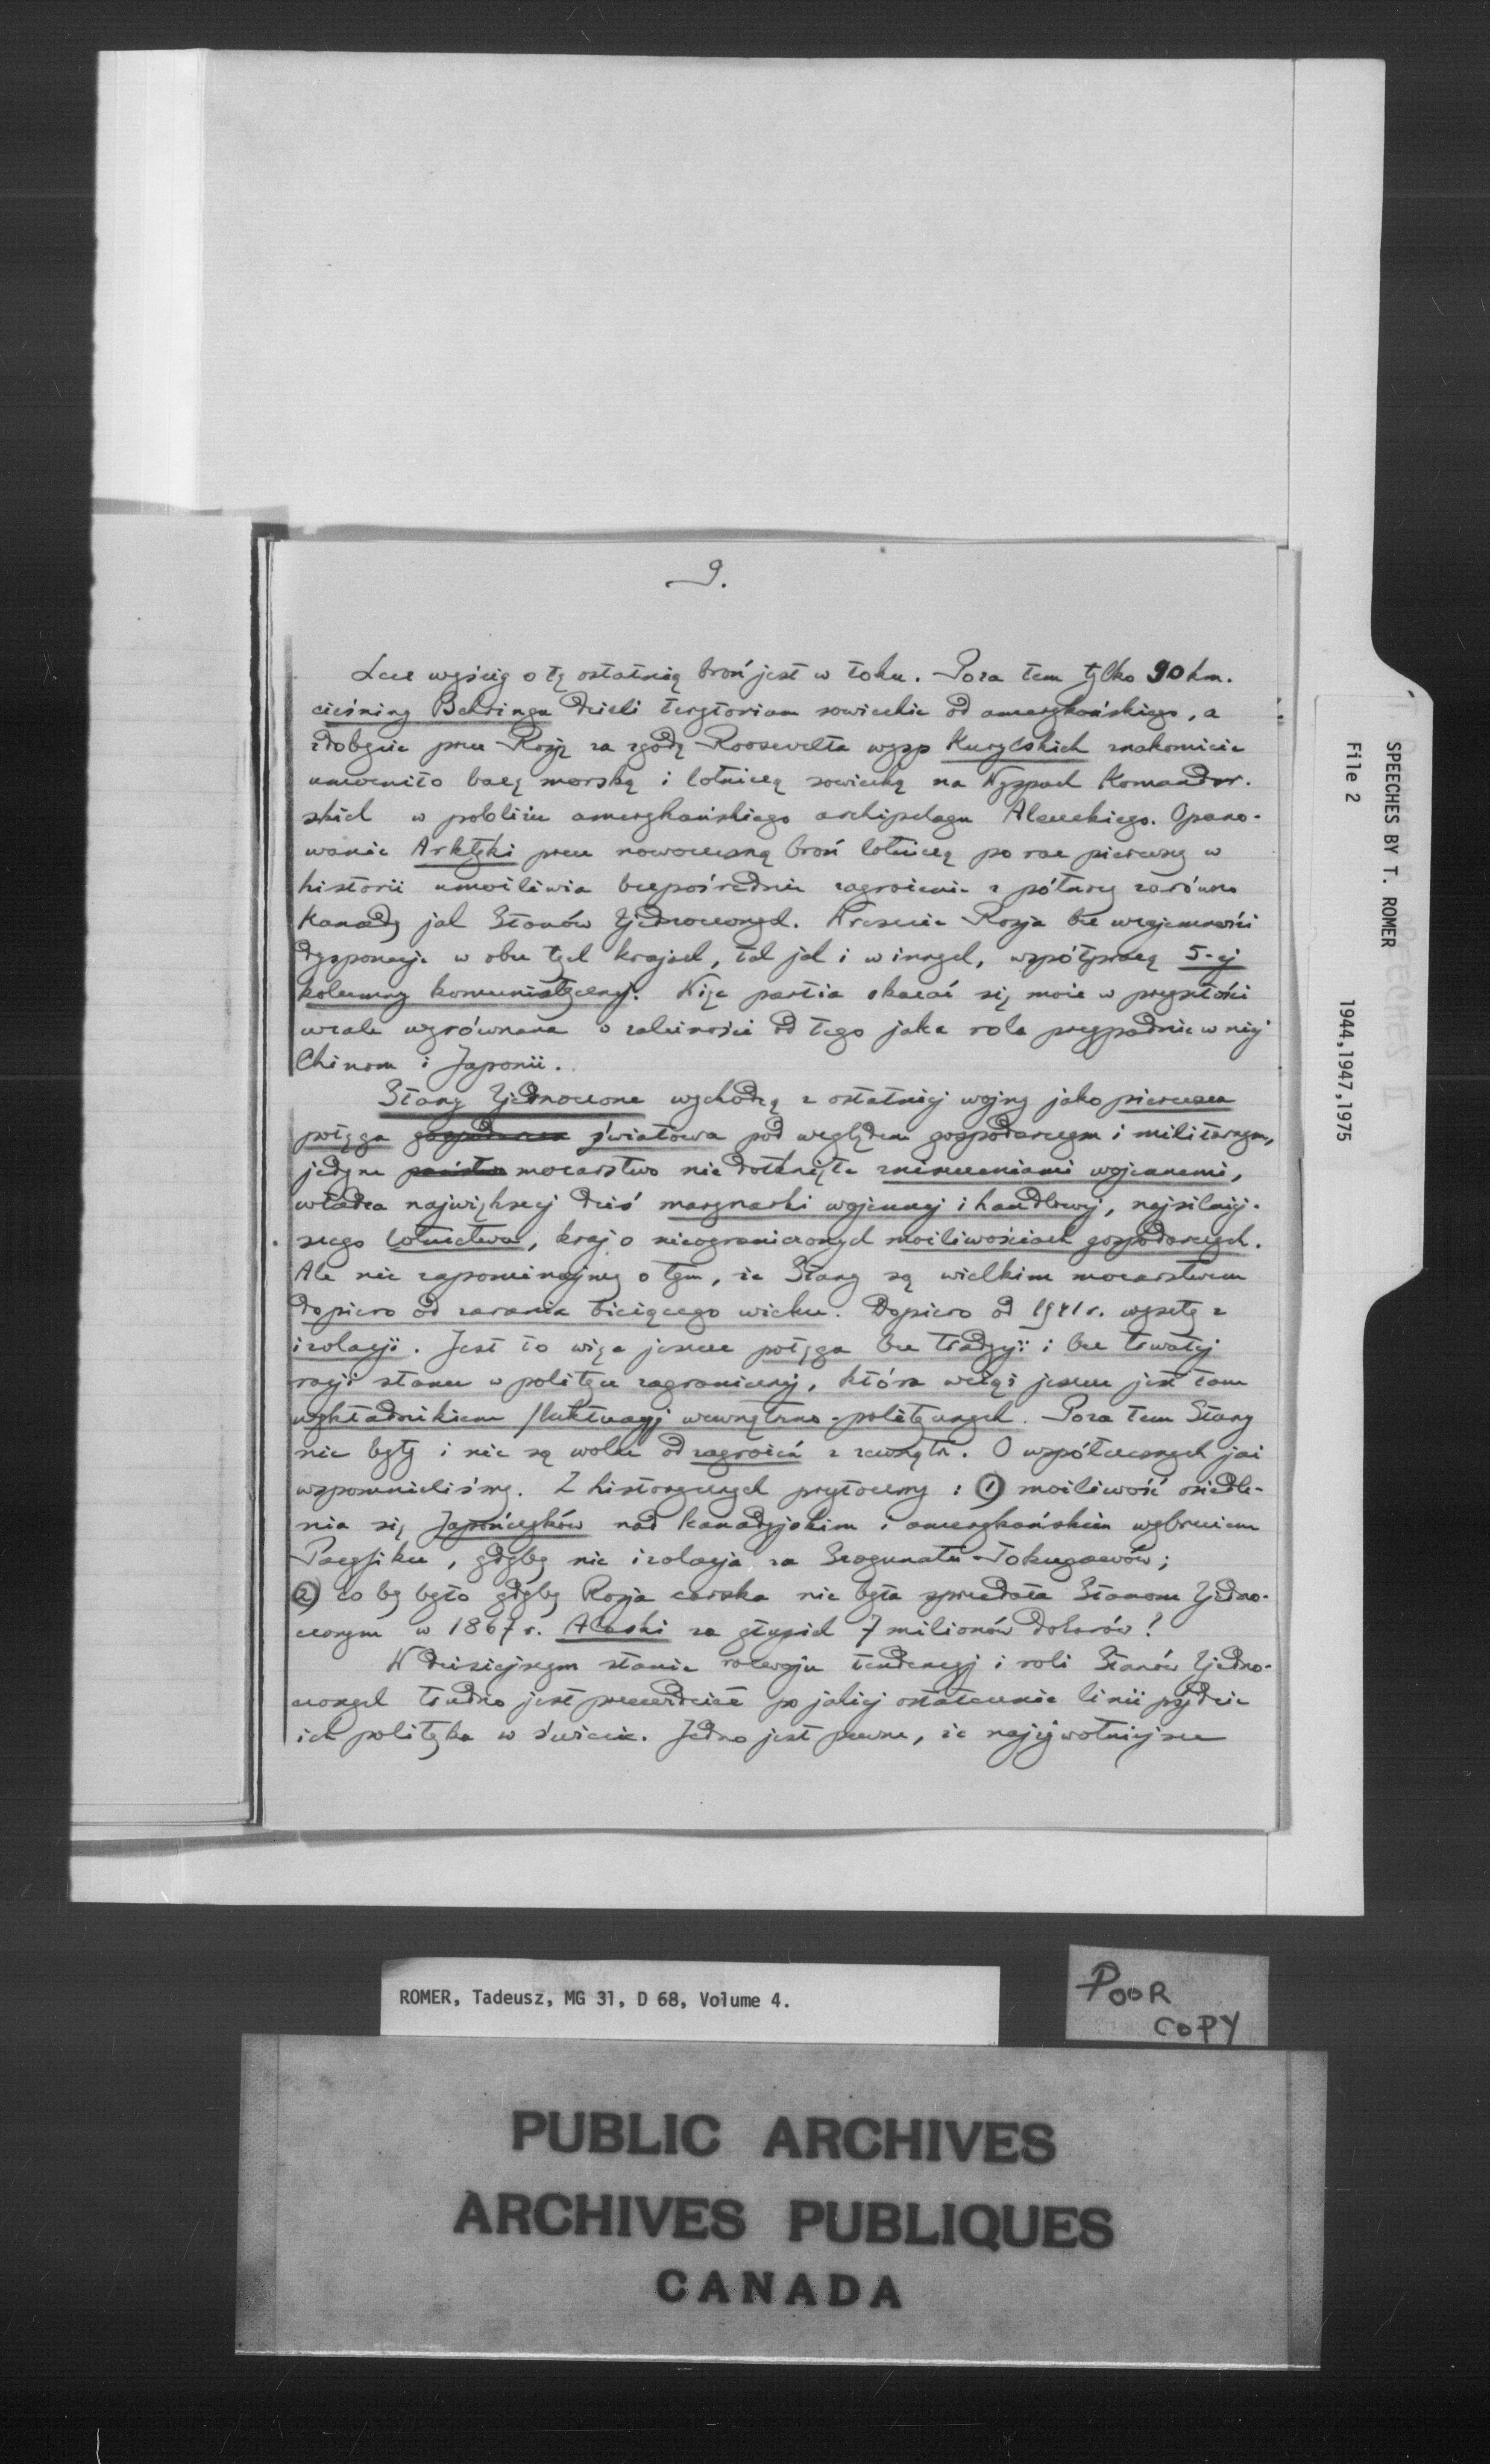 9.
Lecz wyścig o tę ostatnią broń jest w toku. Poza tem tylko 90 km.
cieśniny Behringa dzieli terytorium sowieckie od amerykańskiego, a
zdobycie przez Rosję za zgodą Roosevelta wysp Kurylskich znakomicie
umocniło bazę morską i lotniczą sowiecką na Wyspach Komandor-
skich w pobliżu amerykańskiego archipelagu Aleuckiego. Opano-
wanie Arktyki przez nowoczesną broń lotniczą po raz pierwszy w
historii umożliwia bezpośrednie zagrożenie z północy zarówno
Kanady jak Stanów Zjednoczonych. Wreszcie Rosja bez wzajemności
dysponuje w obu tych krajach, tak jak i w innych, współpracą 5-ej
kolumny komunistycznej. Więc partia okazać się może w przyszłości
wcale wyrównana w zależności od tego jaka rola przypadnie w niej
Chinom i Japonii.
Stany Zjednoczone wychodzą z ostatniej wojny jako pierwsza
potęga gospodarcza światowa pod względem gospodarczym i militarnym,
jedyne państwo mocarstwo niedotknięte zniszczeniami wojennemi,
władca największej dziś marynarki wojennej i handlowej, najsilniej-
szego lotnictwa, kraj o nieograniczonych możliwościach gospodarczych.
Ale nie zapominajmy o tym, że Stany są wielkim mocarstwem
dopiero od zarania bieżącego wieku. Dopiero od 1941 r. wyszły z
izolacji. Jest to więc jeszcze potęga bez tradycji i bez trwałej
racji stanu w polityce zagranicznej, która wciąż jeszcze jest tam
wykładnikiem fluktuacyj wewnętrzno-politycznych. Poza tem Stany
nie były i nie są wolne od zagrożeń z zewnątrz. O współczesnych już
wspomnieliśmy. Z historycznych przytoczmy: 1) możliwość osiedle-
nia się Japończyków nad kanadyjskim i amerykańskim wybrzeżem
Pacyfiku, gdyby nie izolacja za Szogunatu Tokugawów;
2) co by było gdyby Rosja carska nie była sprzedała Stanom Zjedno-
czonym w 1867 r. Alaski za głupich 7 milionów dolarów?
W dzisiejszym stanie rozwoju tendencyj i roli Stanów Zjedno-
czonych trudno jest przewidzieć po jakiej ostatecznie linii pójdzie
ich polityka w świecie. Jedno jest pewne, że najżywotniejsze
SPEECHES BY T. ROMER
File 2
1944,1947,1975
ROMER, Tadeusz, MG 31, D 68, Volume 4.
POOR
COPY
PUBLIC ARCHIVES
ARCHIVES PUBLIQUES
CANADA